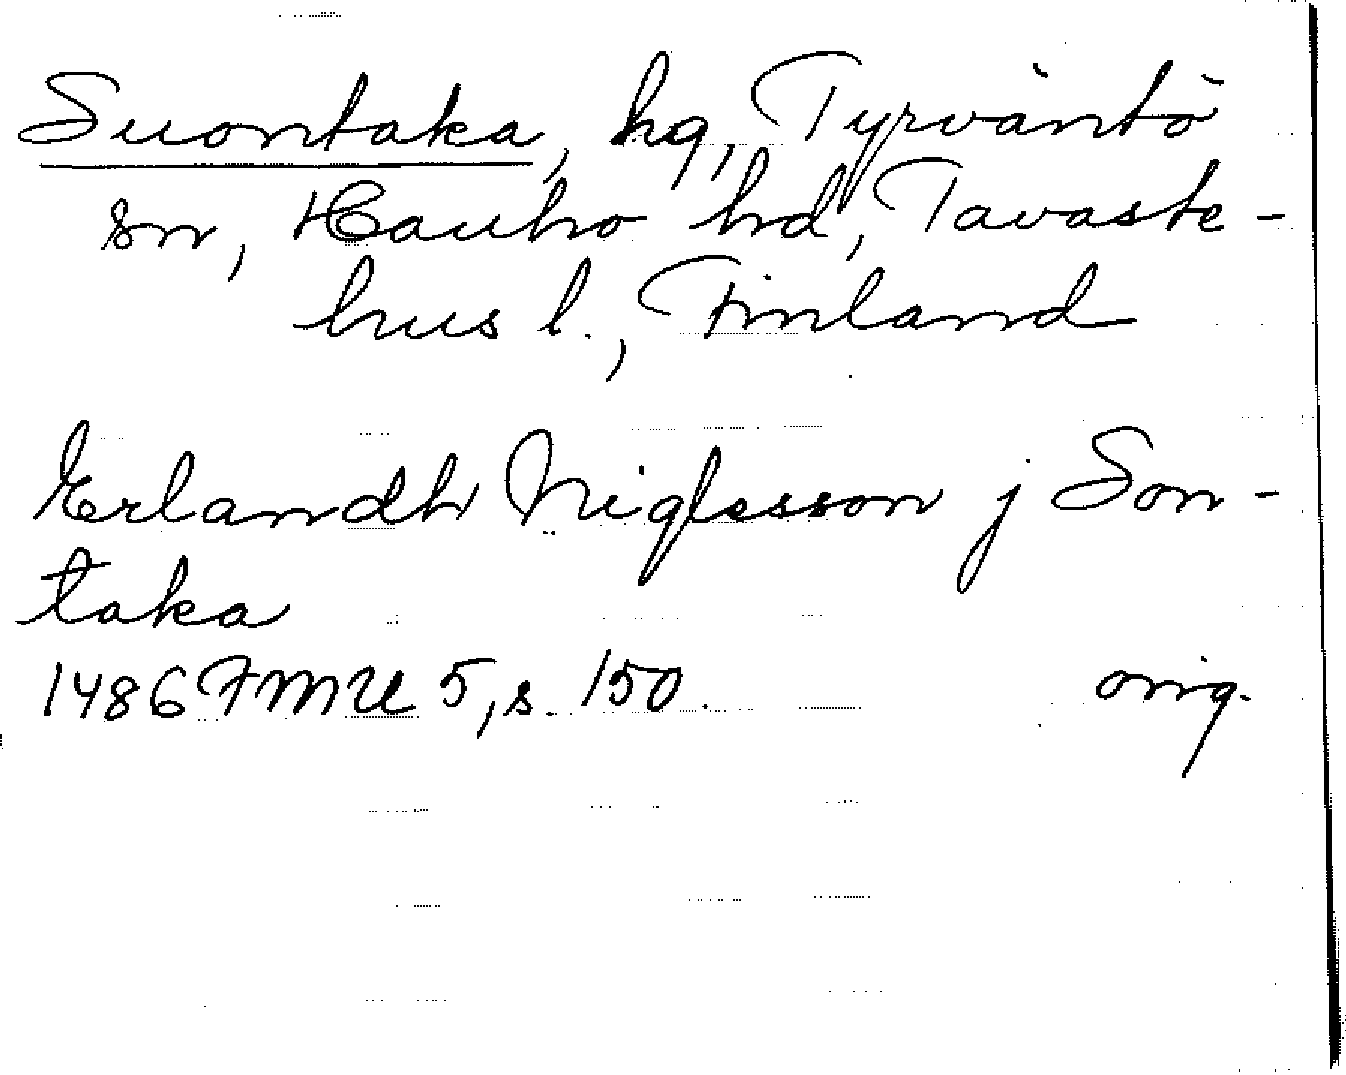 Suontaka, hg, Tyrväntö
sn, Hauho hd, Tavaste-
hus l., Finland
Erlandh Niglesson j Son-
taka
1486 FMU 5, s. 150. orig.